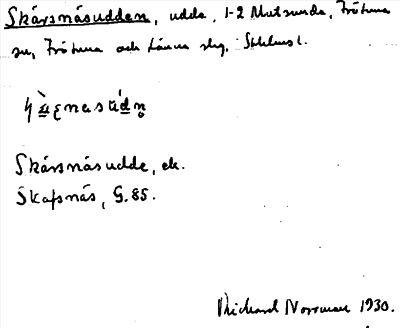 Skärsnäsudden, udde, 1-2 Mutsunda, Frötuna
sn, Frötuna och Länna slg, Sthlms l.
Skärsnäsudde, ek.
Skafsnäs, G. 85.
Richard Norrman 1930.